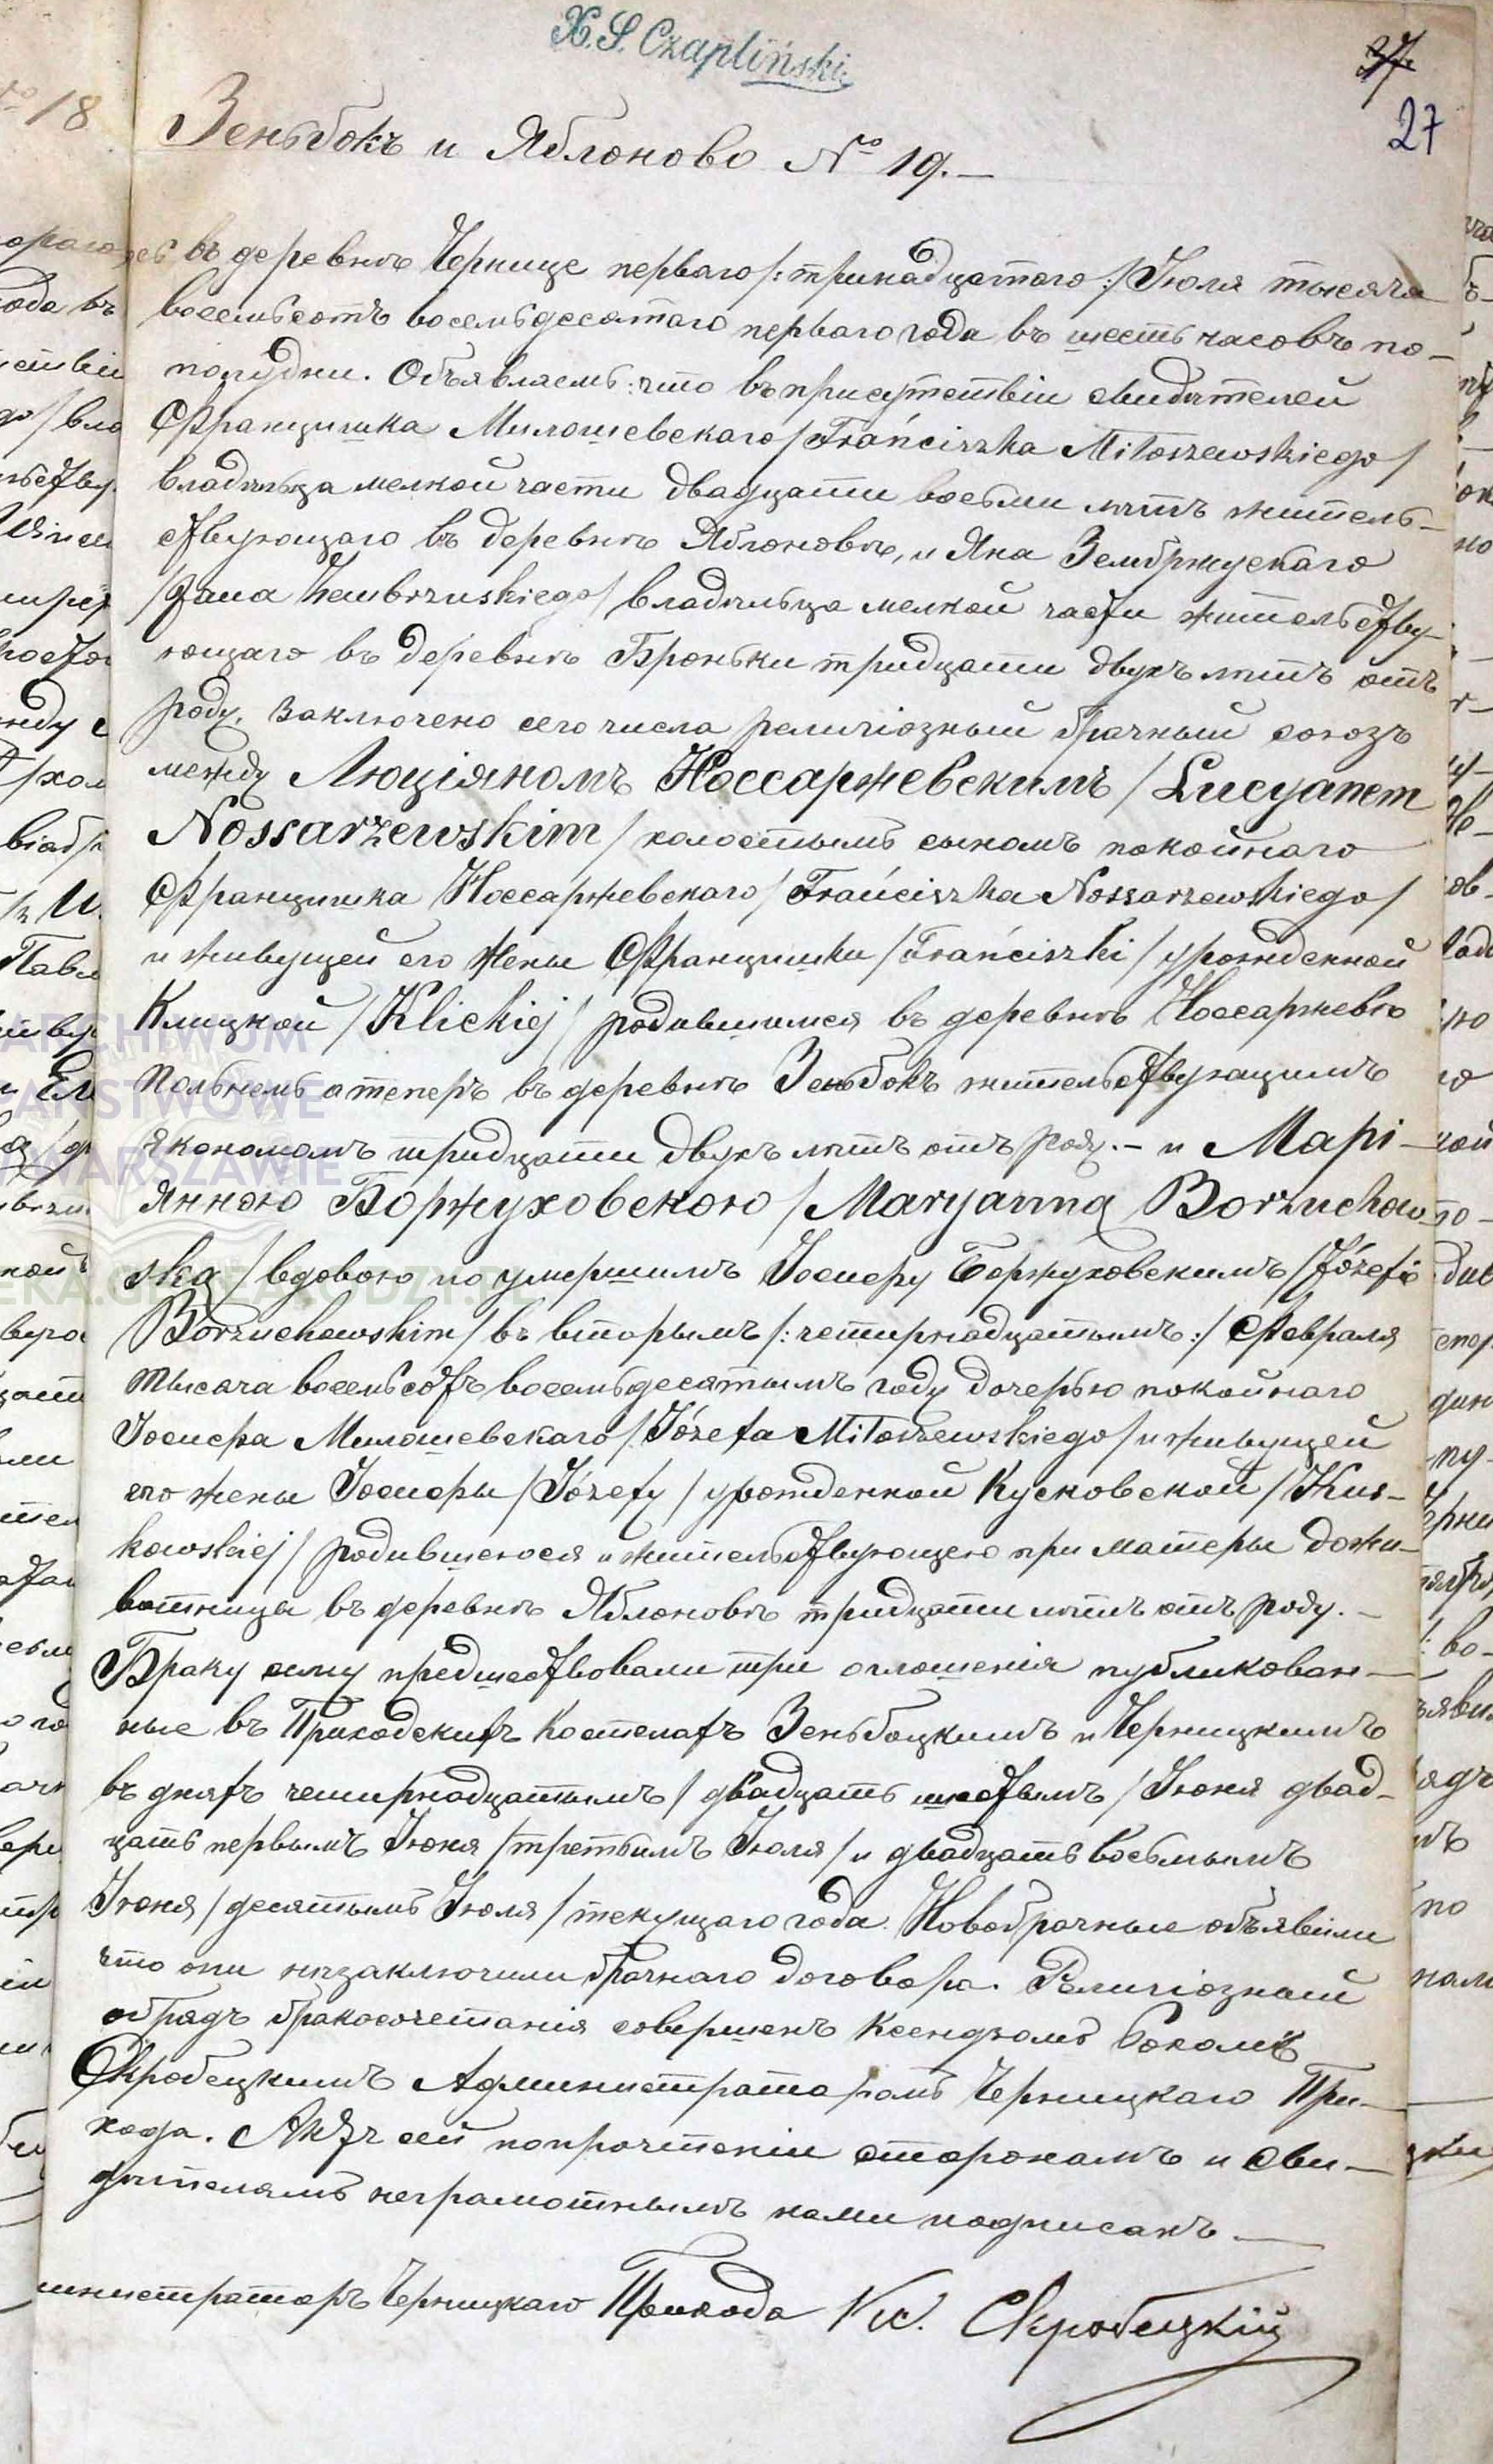 X. S. Czapliński
37
27
№ 18
Зеньбокъ и Яблоново № 19.—
въ деревнѣ Чернице перваго /:тринадцатого:/ Іюля тысяча
восемьсотъ восемьдесятаго перваго года въ шесть часовъ по-
полудни. Объявляемъ: что въ присутствіи свидѣтелей
Францишка Милошевскаго /Frańciszka Miłoszewskiego/
владѣльца мелкой части двадцати восьми лѣтъ житель-
ствующаго въ деревнѣ Яблоновѣ, и Яна Зембржускаго
/Jana Zembrzuskiego/ владѣльца мелкой части жительству-
ющаго въ деревнѣ Броньки тридцати двухъ лѣтъ отъ
роду, заключено сего числа религіозный брачный союзъ
между Люціяномъ Носсаржевскимъ /Lucyanem
Nossarzewskim/ холостымъ сыномъ покойнаго
Францишка Носсаржевскаго /Frańciszka Nossarzewskiego/
и живущей его жены Францишки /Frańciszki/ урожденной
Клицкой /Klickiej/ родившимся въ деревнѣ Носсаржево
Польнемъ а теперъ въ деревнѣ Зеньбокъ жительствующимъ
економомъ тридцати двухъ лѣтъ отъ роду. – и Марі-
янною Боржуховскою /Maryanną Borzuchow-
ską/ вдовою по умершимъ Іосиеру Боржуховскимъ /Józefie
Borzuchowskim/ въ вторымъ /:четирнадцатымъ:/ Февраля
тысяча восемьсотъ восемьдесятымъ году дочерью покойнаго
Іосиера Милошевскаго /Józefa Miłoszewskiego/ и живущей
его жены Іосиеры /Józefy/ урожденной Кусковской /Kus-
kowskiej/ родившеюся и жительствующею при матеры дожи-
вотницы въ деревнѣ Яблоновѣ тридцати лѣтъ отъ роду. –
Браку сему предшествовали три оглошенія публикован-
ные въ Приходскихъ Костелахъ Зеньбоцкимъ и Черницкимъ
въ дняхъ четирнадцатымъ /двадцать шестымъ/ Іюня двад-
цать первымъ Іюня /третьимъ Іюля/ и двадцать восьмымъ
Іюня /десятымъ Іюля/ текущаго года. Новобрачные объявіли
что они незаключили брачнаго договора. Религіозный
обрядъ бракосочетанія совершенъ Ксендзомъ
Скробецкимъ Администраторомъ Черницкаго При-
хода. Актъ сей попрочтеніи сторонамъ и сви-
дѣтелямъ неграмотнымъ нами подписанъ —
министраторъ Черницкаго Прихода Кс. Скробецкій